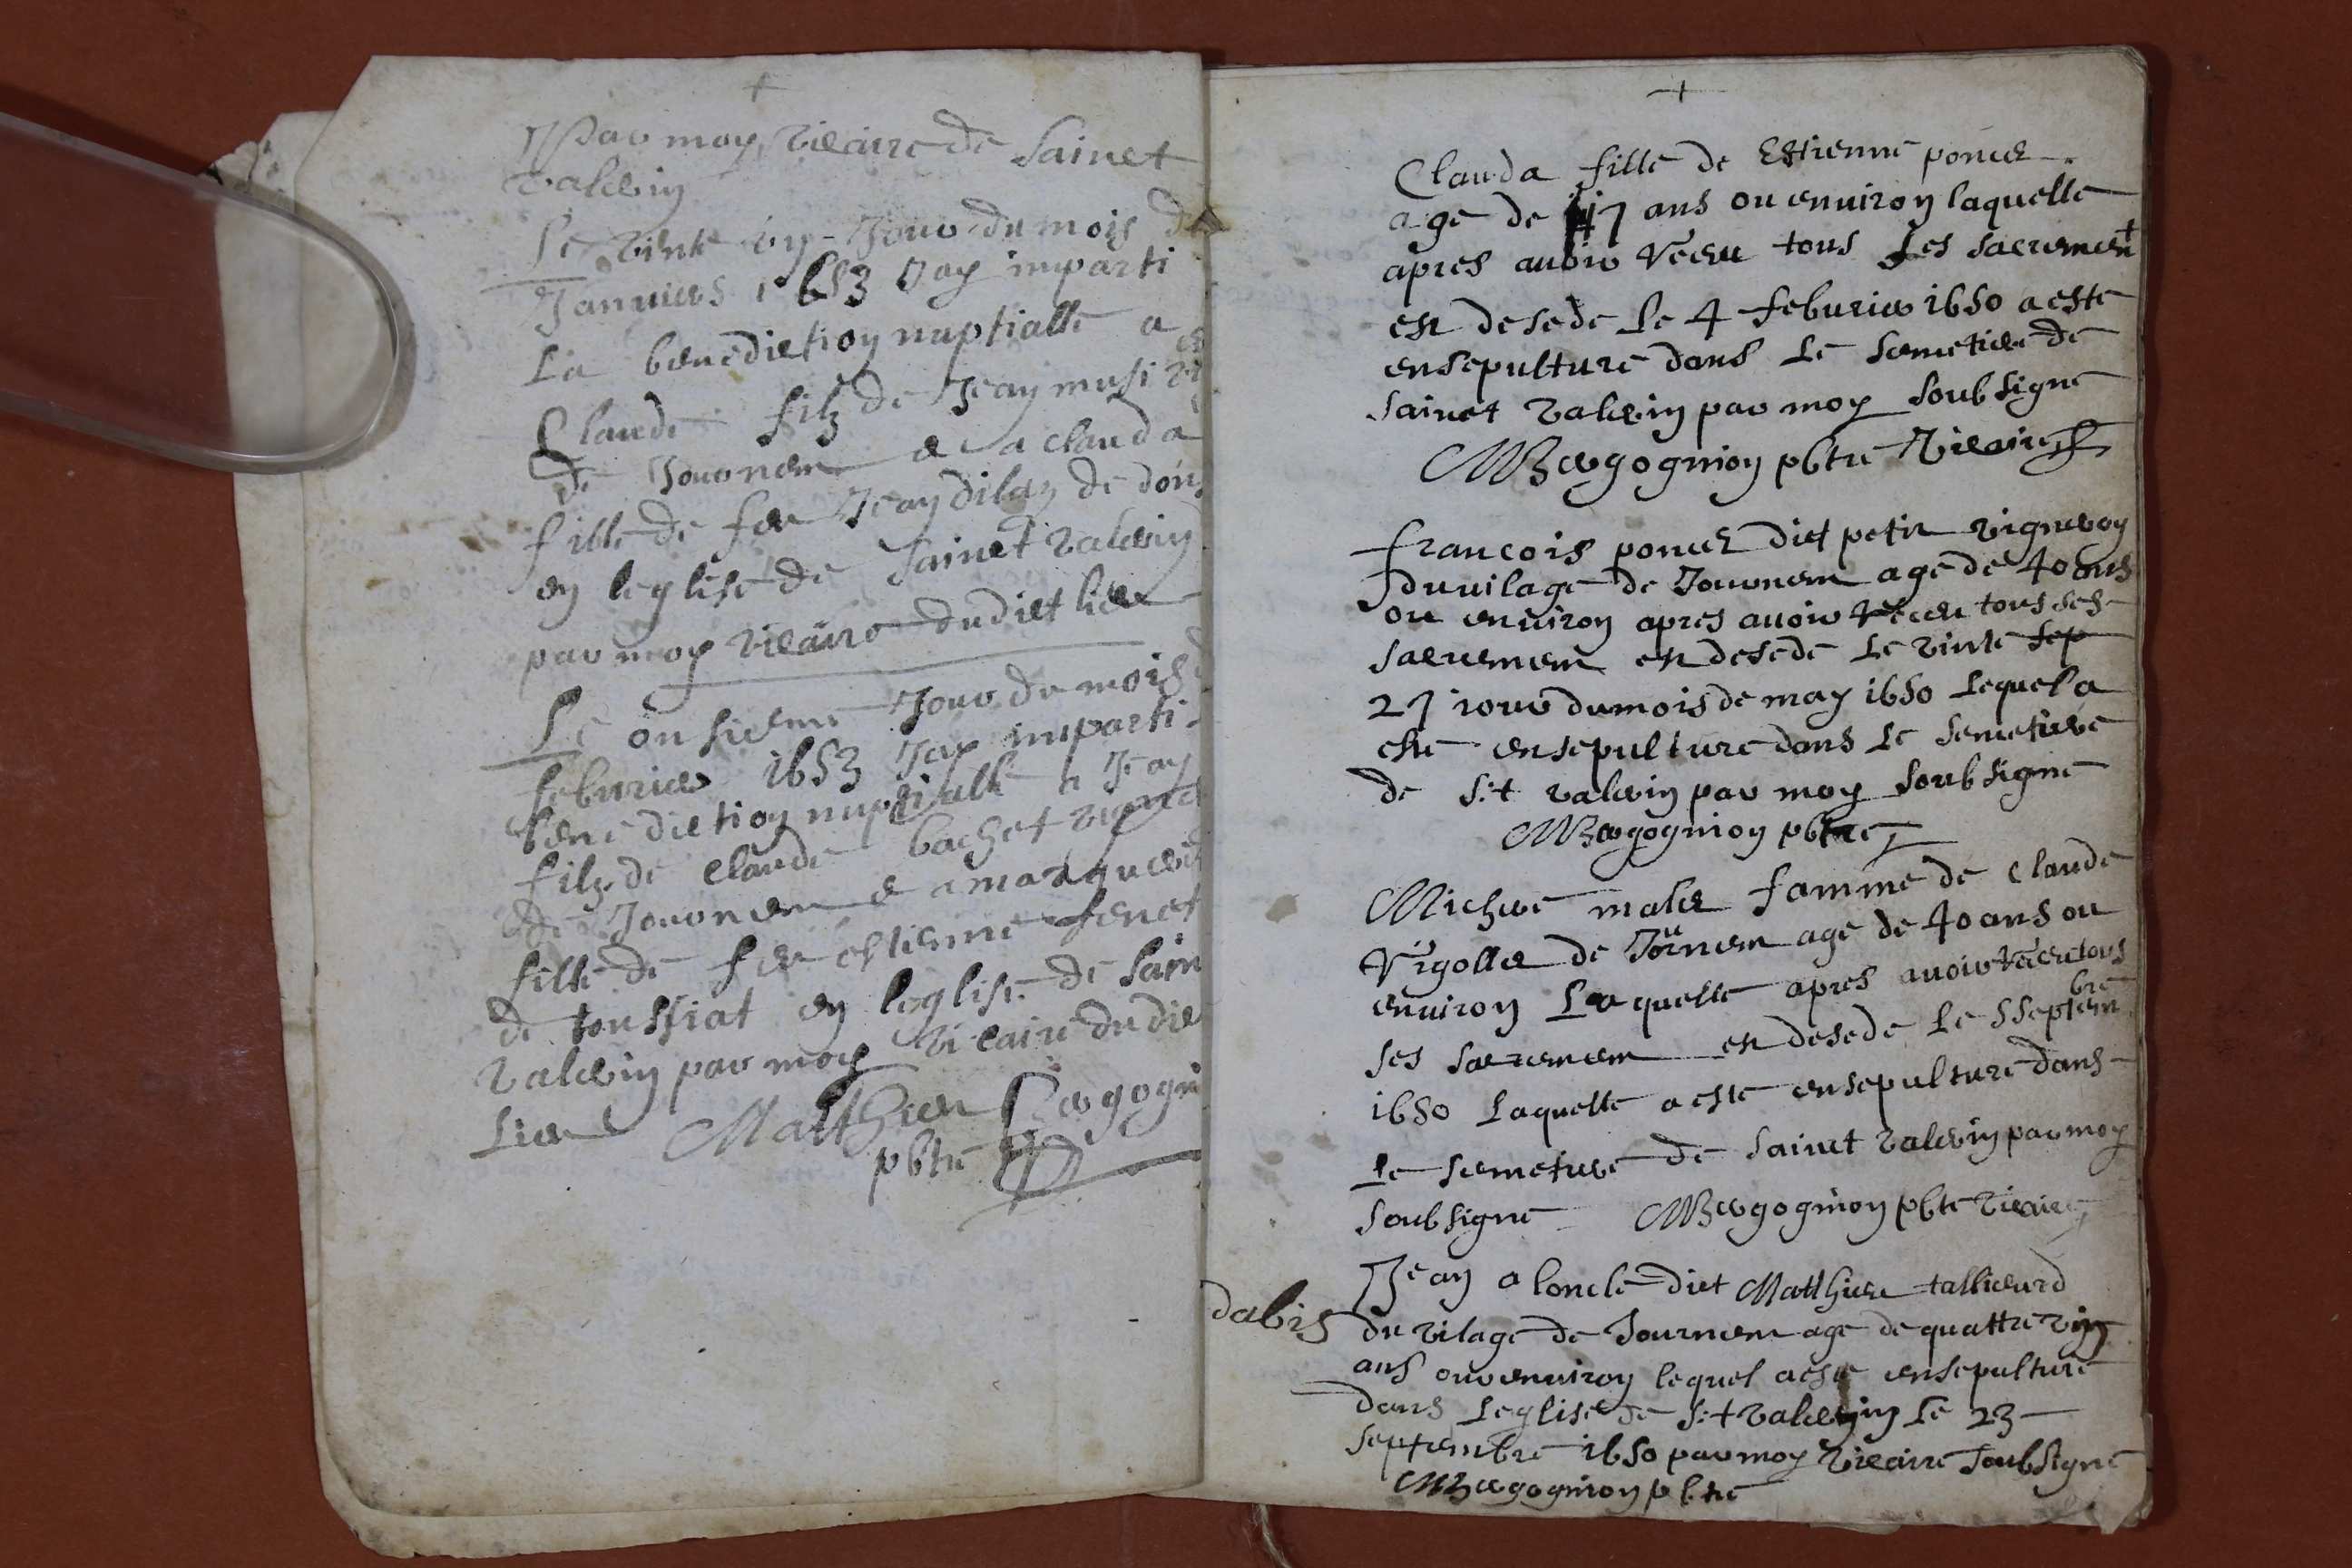 par moy vicaire de Sainct
valerin
Le vinte un Jour du mois de
Janvier 1653 Jay imparti
La benediction nuptialle a
Claude filz de Jean musi
de Journem & a clauda
fille de feu Jean dilaz de
en leglise de Sainct valerin
par moy vicaire dudict lieu
Le onsieme Jour du mois
feburier 1653 Jay imparti
benediction nuptialle a Jean
filz de claude bachet
de Journem & a marguerit
fille de feu estienne fenet
de toussiat en leglise de Sain
valerin par moy vicaire du dic
Lieu Matthieu Bergogn
pbtre
Clauda fille de Estienne poncet
age de 47 ans ou environ laquelle
apres avoir receu tous Les sacrement
est desede Le 4 feburier 1650 a este
ensepulture dans Le semetiere de
sainct valerin par moy soubsigne
MBergognion pbtre Vicaire
francois poncet dict petit vigneron
du vilage de Journem age de 40 ans
ou environ apres avoir receu tous ses
sacremem est desede Le vinte sep
27 iour du mois de may 1650 Lequel a
este ensepulture dans Le semetiere
de S:t valerin par moy soubsigne
MBergognion pbtre
Michere malet famme de Claude
rigollet de Journem age de 40 ans ou
environ Laquelle apres avoir receu tous
ses sacremem est desede Le 5 septembre
1650 Laquelle a este ensepulture dans
Le semetiere de sainct valerin par moy
soubsigne MBergognion pbte vicaire
Jean a loncle dict Matthieu tallieurd
dabis
du vilage de Journem age de quattre vin
ans ou environ lequel a este ensepulture
dans Leglise de S:t valerin Le 23
septembre 1650 par moy vicaire soubsigne
MBergognion pbtre